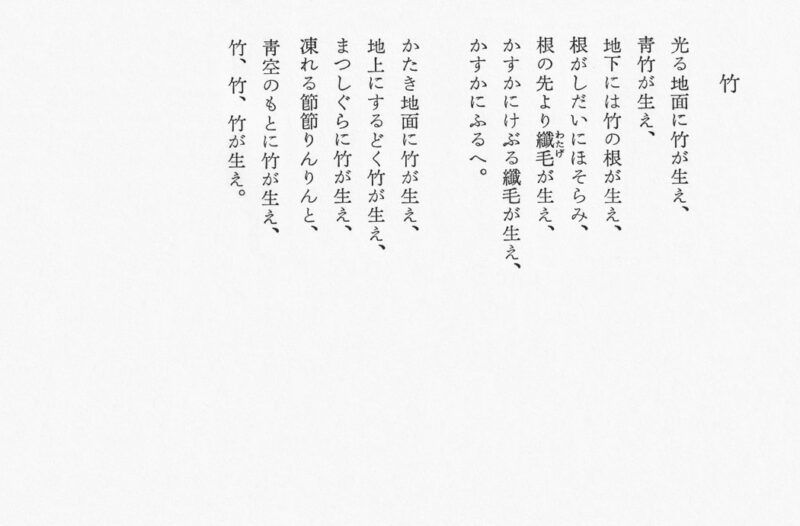 竹
光る地面に竹が生え、
青竹が生え、
地下には竹の根が生え、
根がしだいにほそらみ、
根の先より纖毛が生え、
わたげ
かすかにけぶる纖毛が生え、
かすかにふるへ。
かたき地面に竹が生え、
地上にするどく竹が生え、
まつしぐらに竹が生え、
凍れる節節りんりんと、
靑空のもとに竹が生え、
竹、竹、竹が生え。